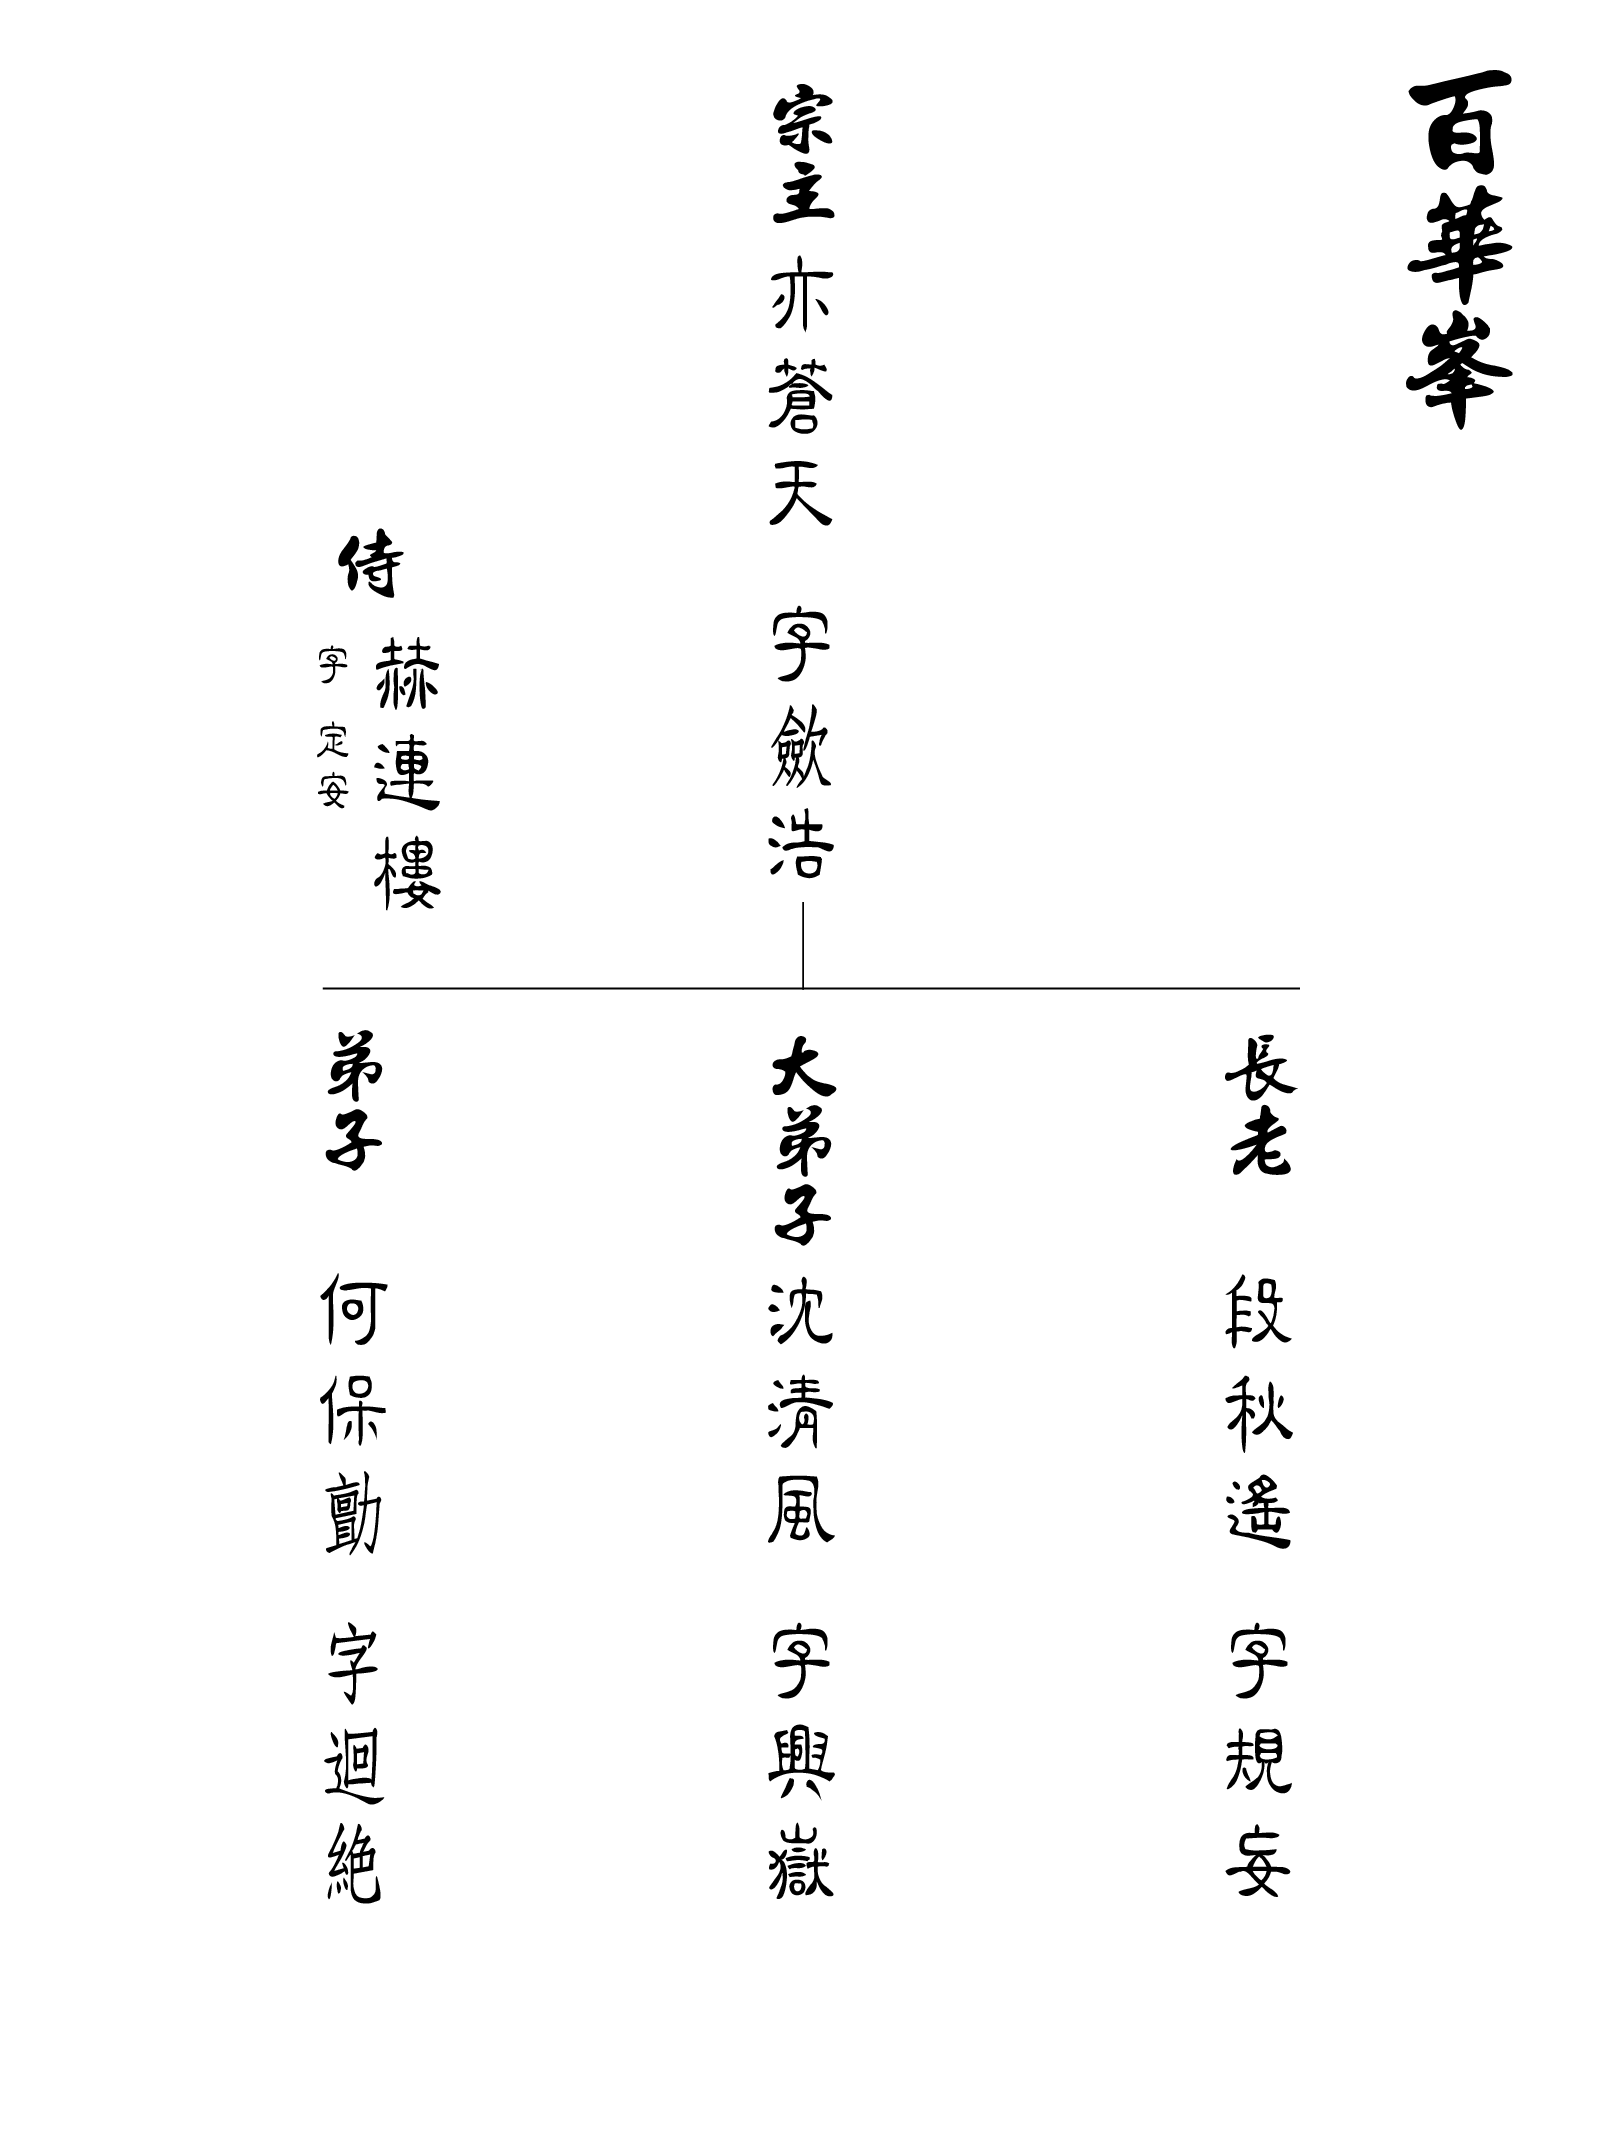 百華峯
宗主 亦蒼天 字歛浩
侍 赫連樓
字 定安
長老 段秋遙 字規妄
大弟子 沈清風 字興嶽
弟子 何保勯 字迴絕